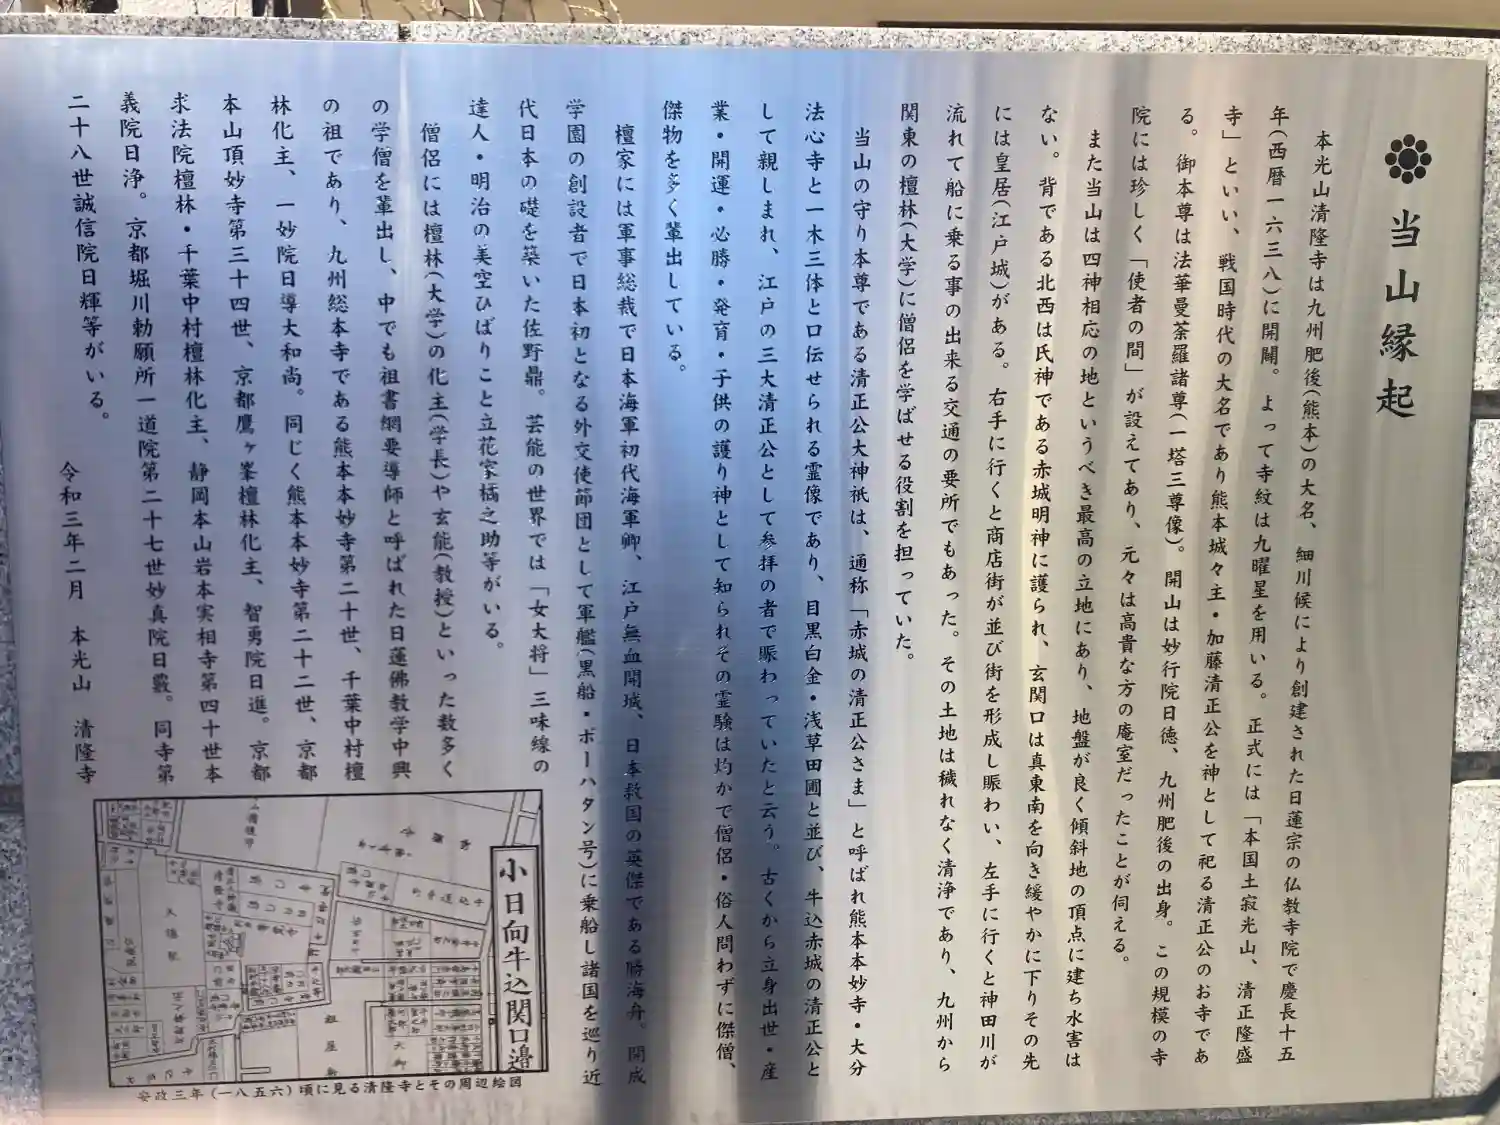 当山縁起
本光山清隆寺は九州肥後(熊本)の大名、細川候により創建された日蓮宗の仏教寺院で慶長十五
年(西暦一六三八)に開闢。よって寺紋は九曜星を用いる。正式には「本国土寂光山、清正隆盛
寺」といい、戦国時代の大名であり熊本城々主・加藤清正公を神として祀る清正公のお寺であ
る。御本尊は法華曼荼羅諸尊(一塔三尊像)。開山は妙行院日徳、九州肥後の出身。この規模の寺
院には珍しく「使者の間」が設えてあり、元々は高貴な方の庵室だったことが伺える。
また当山は四神相応の地というべき最高の立地にあり、地盤が良く傾斜地の頂点に建ち水害は
ない。背である北西は氏神である赤城明神に護られ、玄関口は真東南を向き緩やかに下りその先
には皇居(江戸城)がある。右手に行くと商店街が並び街を形成し賑わい、左手に行くと神田川が
流れて船に乗る事の出来る交通の要所でもあった。その土地は穢れなく清浄であり、九州から
関東の檀林(大学)に僧侶を学ばせる役割を担っていた。
当山の守り本尊である清正公大神祇は、通称「赤城の清正公さま」と呼ばれ熊本本妙寺・大分
法心寺と一木三体と口伝せられる霊像であり、目黒白金・浅草田圃と並び、牛込赤城の清正公と
して親しまれ、江戸の三大清正公として参拝の者で賑わっていたと云う。古くから立身出世・産
業・開運・必勝・発育・子供の護り神として知られその霊験は灼かで僧侶・俗人問わずに傑僧、
傑物を多く輩出している。
檀家には軍事総裁で日本海軍初代海軍卿、江戸無血開城、日本救国の英傑である勝海舟。開成
学園の創設者で日本初となる外交使節団として軍艦(黒船・ポーハタン号)に乗船し諸国を巡り近
代日本の礎を築いた佐野鼎。芸能の世界では「女大将」三味線の
達人・明治の美空ひばりこと立花家橘之助等がいる。
僧侶には檀林(大学)の化主(学長)や玄能(教授)といった数多く
の学僧を輩出し、中でも祖書綱要導師と呼ばれた日蓮佛教学中興
の祖であり、九州総本寺である熊本本妙寺第二十世、千葉中村檀
林化主、一妙院日導大和尚。同じく熊本本妙寺第二十二世、京都
本山頂妙寺第三十四世、京都鷹ヶ峯檀林化主、智勇院日進。京都
求法院檀林・千葉中村檀林化主、静岡本山岩本実相寺第四十世本
義院日浄。京都堀川勅願所一道院第二十七世妙真院日艱。同寺第
二十八世誠信院日輝等がいる。
令和三年二月 本光山 清隆寺
小日向牛込関口邉
安政三年(一八五六)頃に見る清隆寺とその周辺絵図